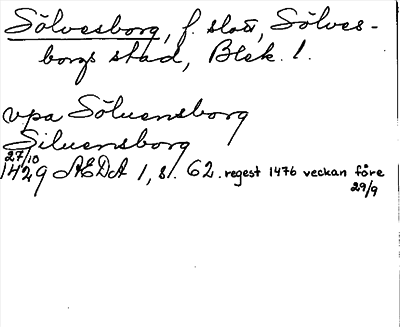 Sölvesborg, f. slott, Sölves-
borgs stad, Blek. l.
vpa Söluensborg
Siluensborg
27/10
1429 AEDA 1, s. 62. regest 1476 veckan före
29/9